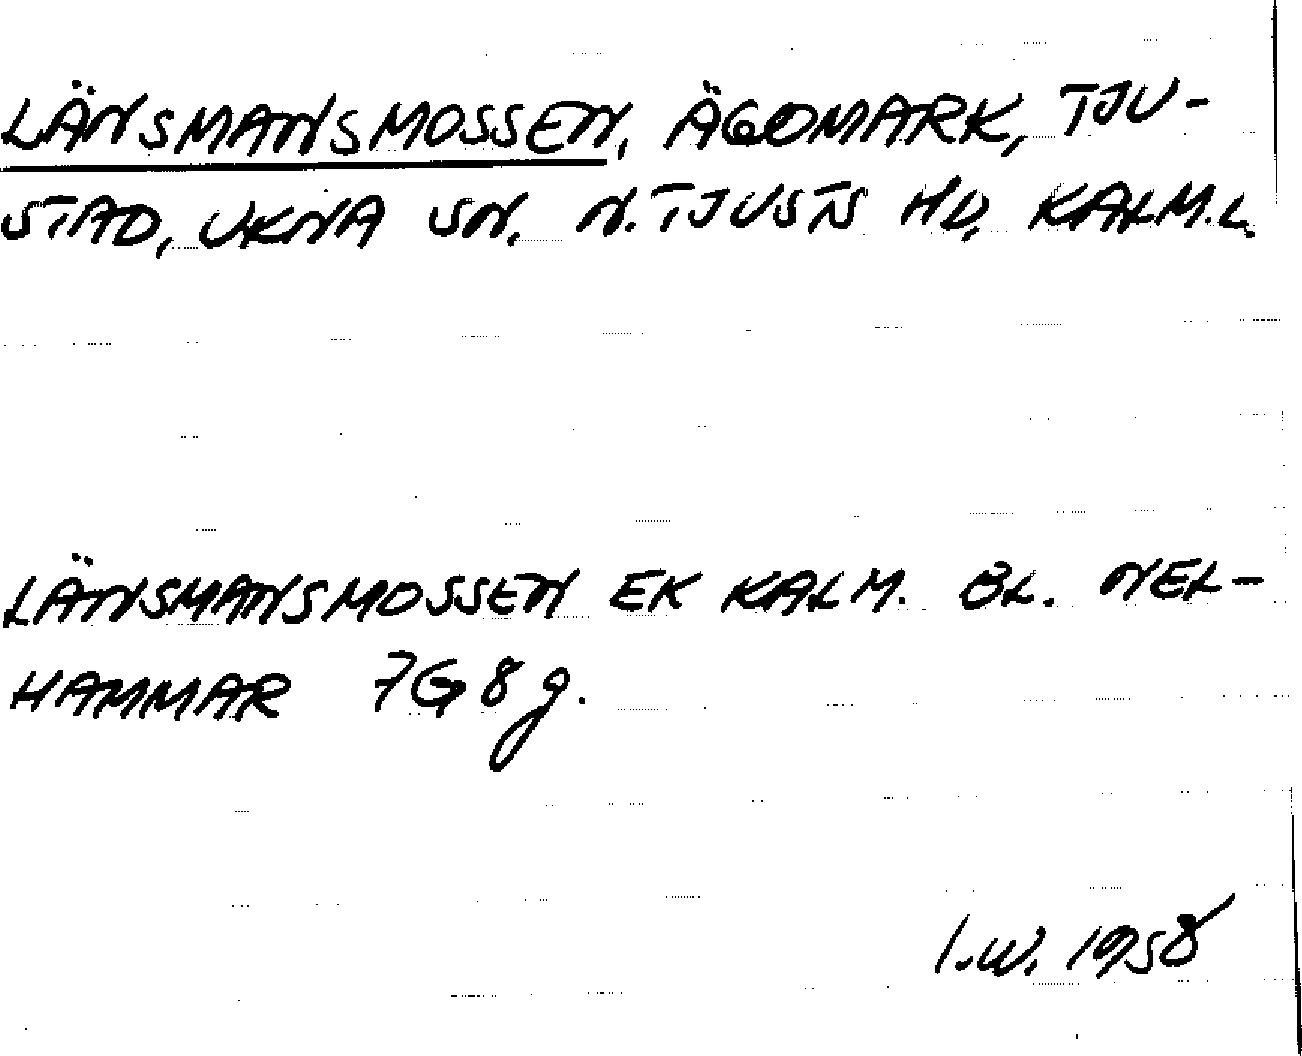 LÄNSMANSMOSSEN, ÄGOMARK, TJU-
STAD, UKNA SN. N. TJUSTS HD, KALM.L.
LÄNSMANSMOSSEN EK KALM. BL. NEL-
HAMMAR 7G8g.
I.W. 1958